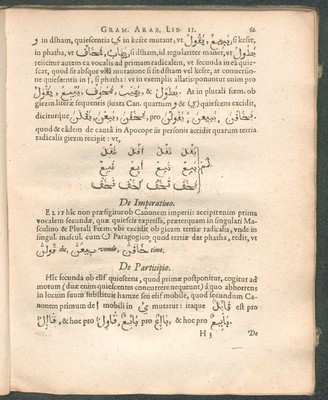 GRAM. ARAB. LIB. II.
و in dsham, quiescentia ي in kesre mutant, vt يَبِيعُ, يَقُولُ, si kesre,
in phatha, vt يَخَافُ, si dsham, id regulariter manet, vt يَطُولُ
reiicitur autem ea vocalis ad primam radicalem, vt secunda in ea quie-
scat, quod si absque mutatione si sit dsham vel kesre, at conuersio-
ne quiescentis in ا, si phatha: vt in exemplis allatis
يَطُولُ, & يَخَافُ, يَبِيعُ, يَقُولُ. At in plurali fœm. ob
giezm literæ sequentis (iuxta Can. quartum و & ي) quiescens excidit,
diciturque يَقُلْنَ, يَبِعْنَ, يَخَفْنَ, pro يَقُولْنَ, يَبِيعْنَ, يَخَافْنَ.
quod & eâdem de causâ in Apocope iis personis accidit quarum tertia
radicalis giezm recipit: vt,
لَمْ يَقُلْ تَقُلْ أَقُلْ نَقُلْ
يَبِعْ تَبِعْ أَبِعْ نَبِعْ
يَخَفْ تَخَفْ أَخَفْ نَخَفْ
De Imperatiuo.
ELIF hîc non præfigitur ob Canonem imperii: accipit enim prima
vocalem secundæ, quæ quiescit expressa, præterquam in singulari Ma-
sculino & Plurali Fœm. vbi excidit ob giezm tertiæ radicalis, vnde in
singul. mascul. cum ن Paragogico: quod tertiæ dat phatha, redit, vt
قُولَنَّ dic, بِيعَنَّ vende, خَافَنَّ time.
De Participio.
HIc secunda ob elif quiescens, quod primæ postponitur, cogitur ad
motum (duæ enim quiescentes concurrere nequeunt) à quo abhorrens
in locum suum substituit hamzæ seu elif mobile, quod secundum Ca-
nonem primum de ا mobili in ئ mutatur: itaque قَائِلٌ est pro
قَاإِلٌ, & hoc pro قَاوِلٌ, بَائِعٌ pro بَاإِعٌ, & hoc pro بَايِعٌ.
H 3 De